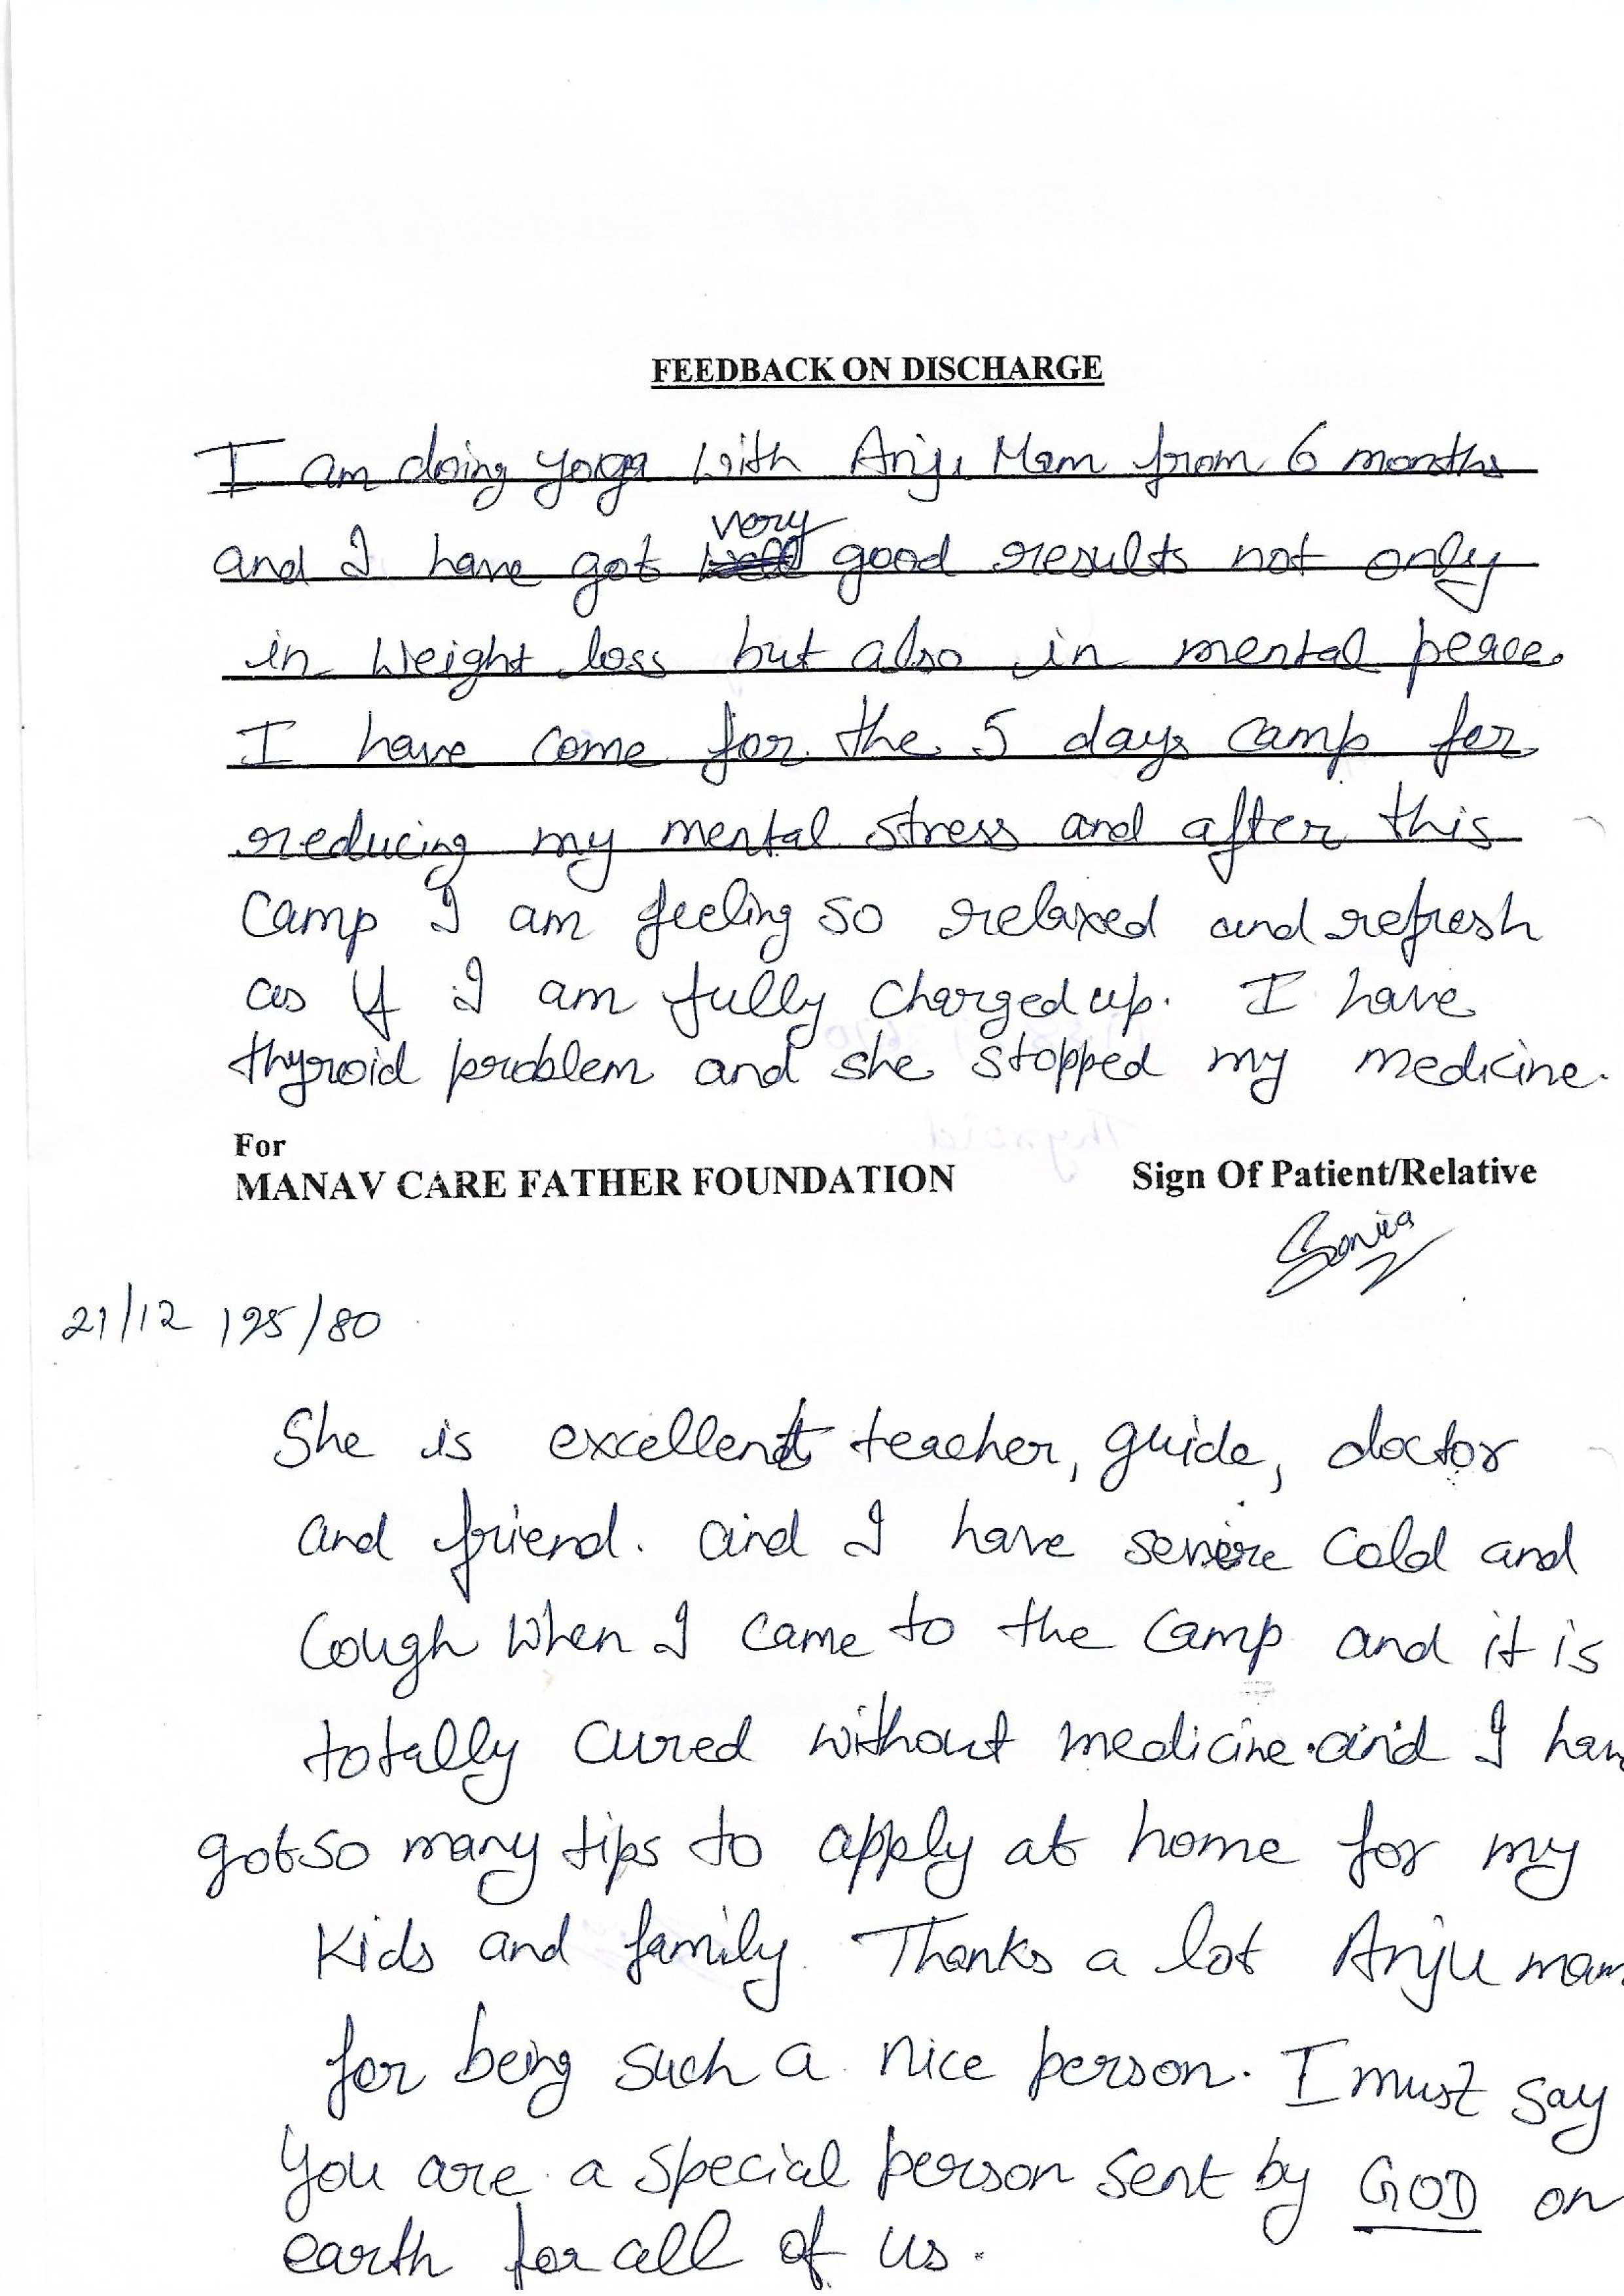 FEEDBACK ON DISCHARGE
I am doing yoga with Anju Mam from 6 months
and I have got very good results not only
in weight loss but also in mental peace.
I have come for the 5 days camp for
reducing my mental stress and after this
camp I am feeling so relaxed and refresh
as if I am fully charged up. I have
thyroid problem and she stopped my medicine.
For
MANAV CARE FATHER FOUNDATION
Sign Of Patient/Relative
Sonia
21/12 125/80
She is excellent teacher, guide, doctor
and friend. and I have severe cold and
cough when I came to the camp and it is
totally cured without medicine. and I hav
got so many tips to apply at home for my
kids and family. Thanks a lot Anju mam
for being such a nice person. I must say
you are a special person sent by GOD on
earth for all of us.